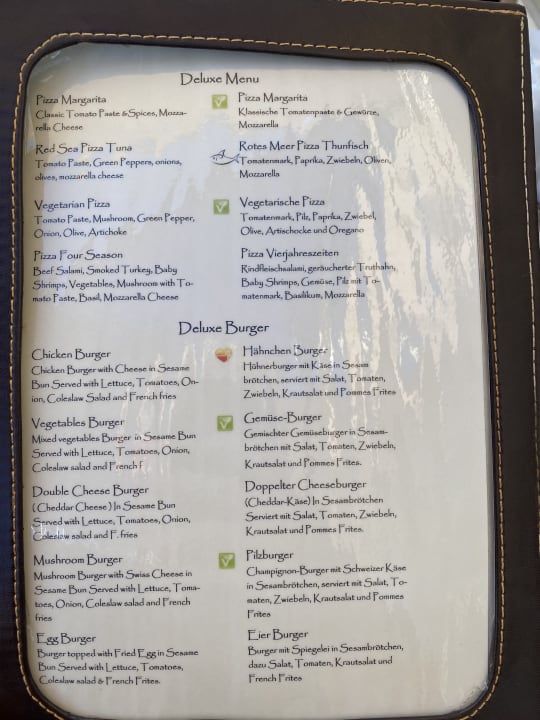 Deluxe Menu
Pizza Margarita
Classic Tomato Paste & Spices, Mozza-
rella Cheese
Pizza Margarita
Klassische Tomatenpaste & Gewürze,
Mozzarella
Red Sea Pizza Tuna
Tomato Paste, Green Peppers, onions,
olives, mozzarella cheese
Rotes Meer Pizza Thunfisch
Tomatenmark, Paprika, Zwiebeln, Oliven,
Mozzarella
Vegetarian Pizza
Tomato Paste, Mushroom, Green Pepper,
Onion, Olive, Artichoke
Vegetarische Pizza
Tomatenmark, Pilz, Paprika, Zwiebel,
Olive, Artischocke und Oregano
Pizza Four Season
Beef Salami, Smoked Turkey, Baby
Shrimps, Vegetables, Mushroom with To-
mato Paste, Basil, Mozzarella Cheese
Pizza Vierjahreszeiten
Rindfleischsalami, geräucherter Truthahn,
Baby Shrimps, Gemüse, Pilz mit To-
matenmark, Basilikum, Mozzarella
Deluxe Burger
Chicken Burger
Chicken Burger with Cheese in Sesame
Bun Served with Lettuce, Tomatoes, On-
ion, Coleslaw Salad and French fries
Hähnchen Burger
Hühnerburger mit Käse in Sesam
brötchen, serviert mit Salat, Tomaten,
Zwiebeln, Krautsalat und Pommes Frites
Vegetables Burger
Mixed vegetables Burger in Sesame Bun
Served with Lettuce, Tomatoes, Onion,
Coleslaw salad and French f
Gemüse-Burger
Gemischter Gemüseburger in Sesam-
brötchen mit Salat, Tomaten, Zwiebeln,
Krautsalat und Pommes Frites.
Double Cheese Burger
(Cheddar Cheese) In Sesame Bun
Served with Lettuce, Tomatoes, Onion,
Coleslaw salad and F. fries
Doppelter Cheeseburger
(Cheddar-Käse) In Sesambrötchen
Serviert mit Salat, Tomaten, Zwiebeln,
Krautsalat und Pommes Frites.
Mushroom Burger
Mushroom Burger with Swiss Cheese in
Sesame Bun Served with Lettuce, Toma-
toes, Onion, Coleslaw salad and French
fries
Pilzburger
Champignon-Burger mit Schweizer Käse
in Sesambrötchen, serviert mit Salat, To-
maten, Zwiebeln, Krautsalat und Pommes
Frites
Egg Burger
Burger topped with Fried Egg in Sesame
Bun Served with Lettuce, Tomatoes,
Coleslaw salad & French Frites.
Eier Burger
Burger mit Spiegelei in Sesambrötchen,
dazu Salat, Tomaten, Krautsalat und
French Frites